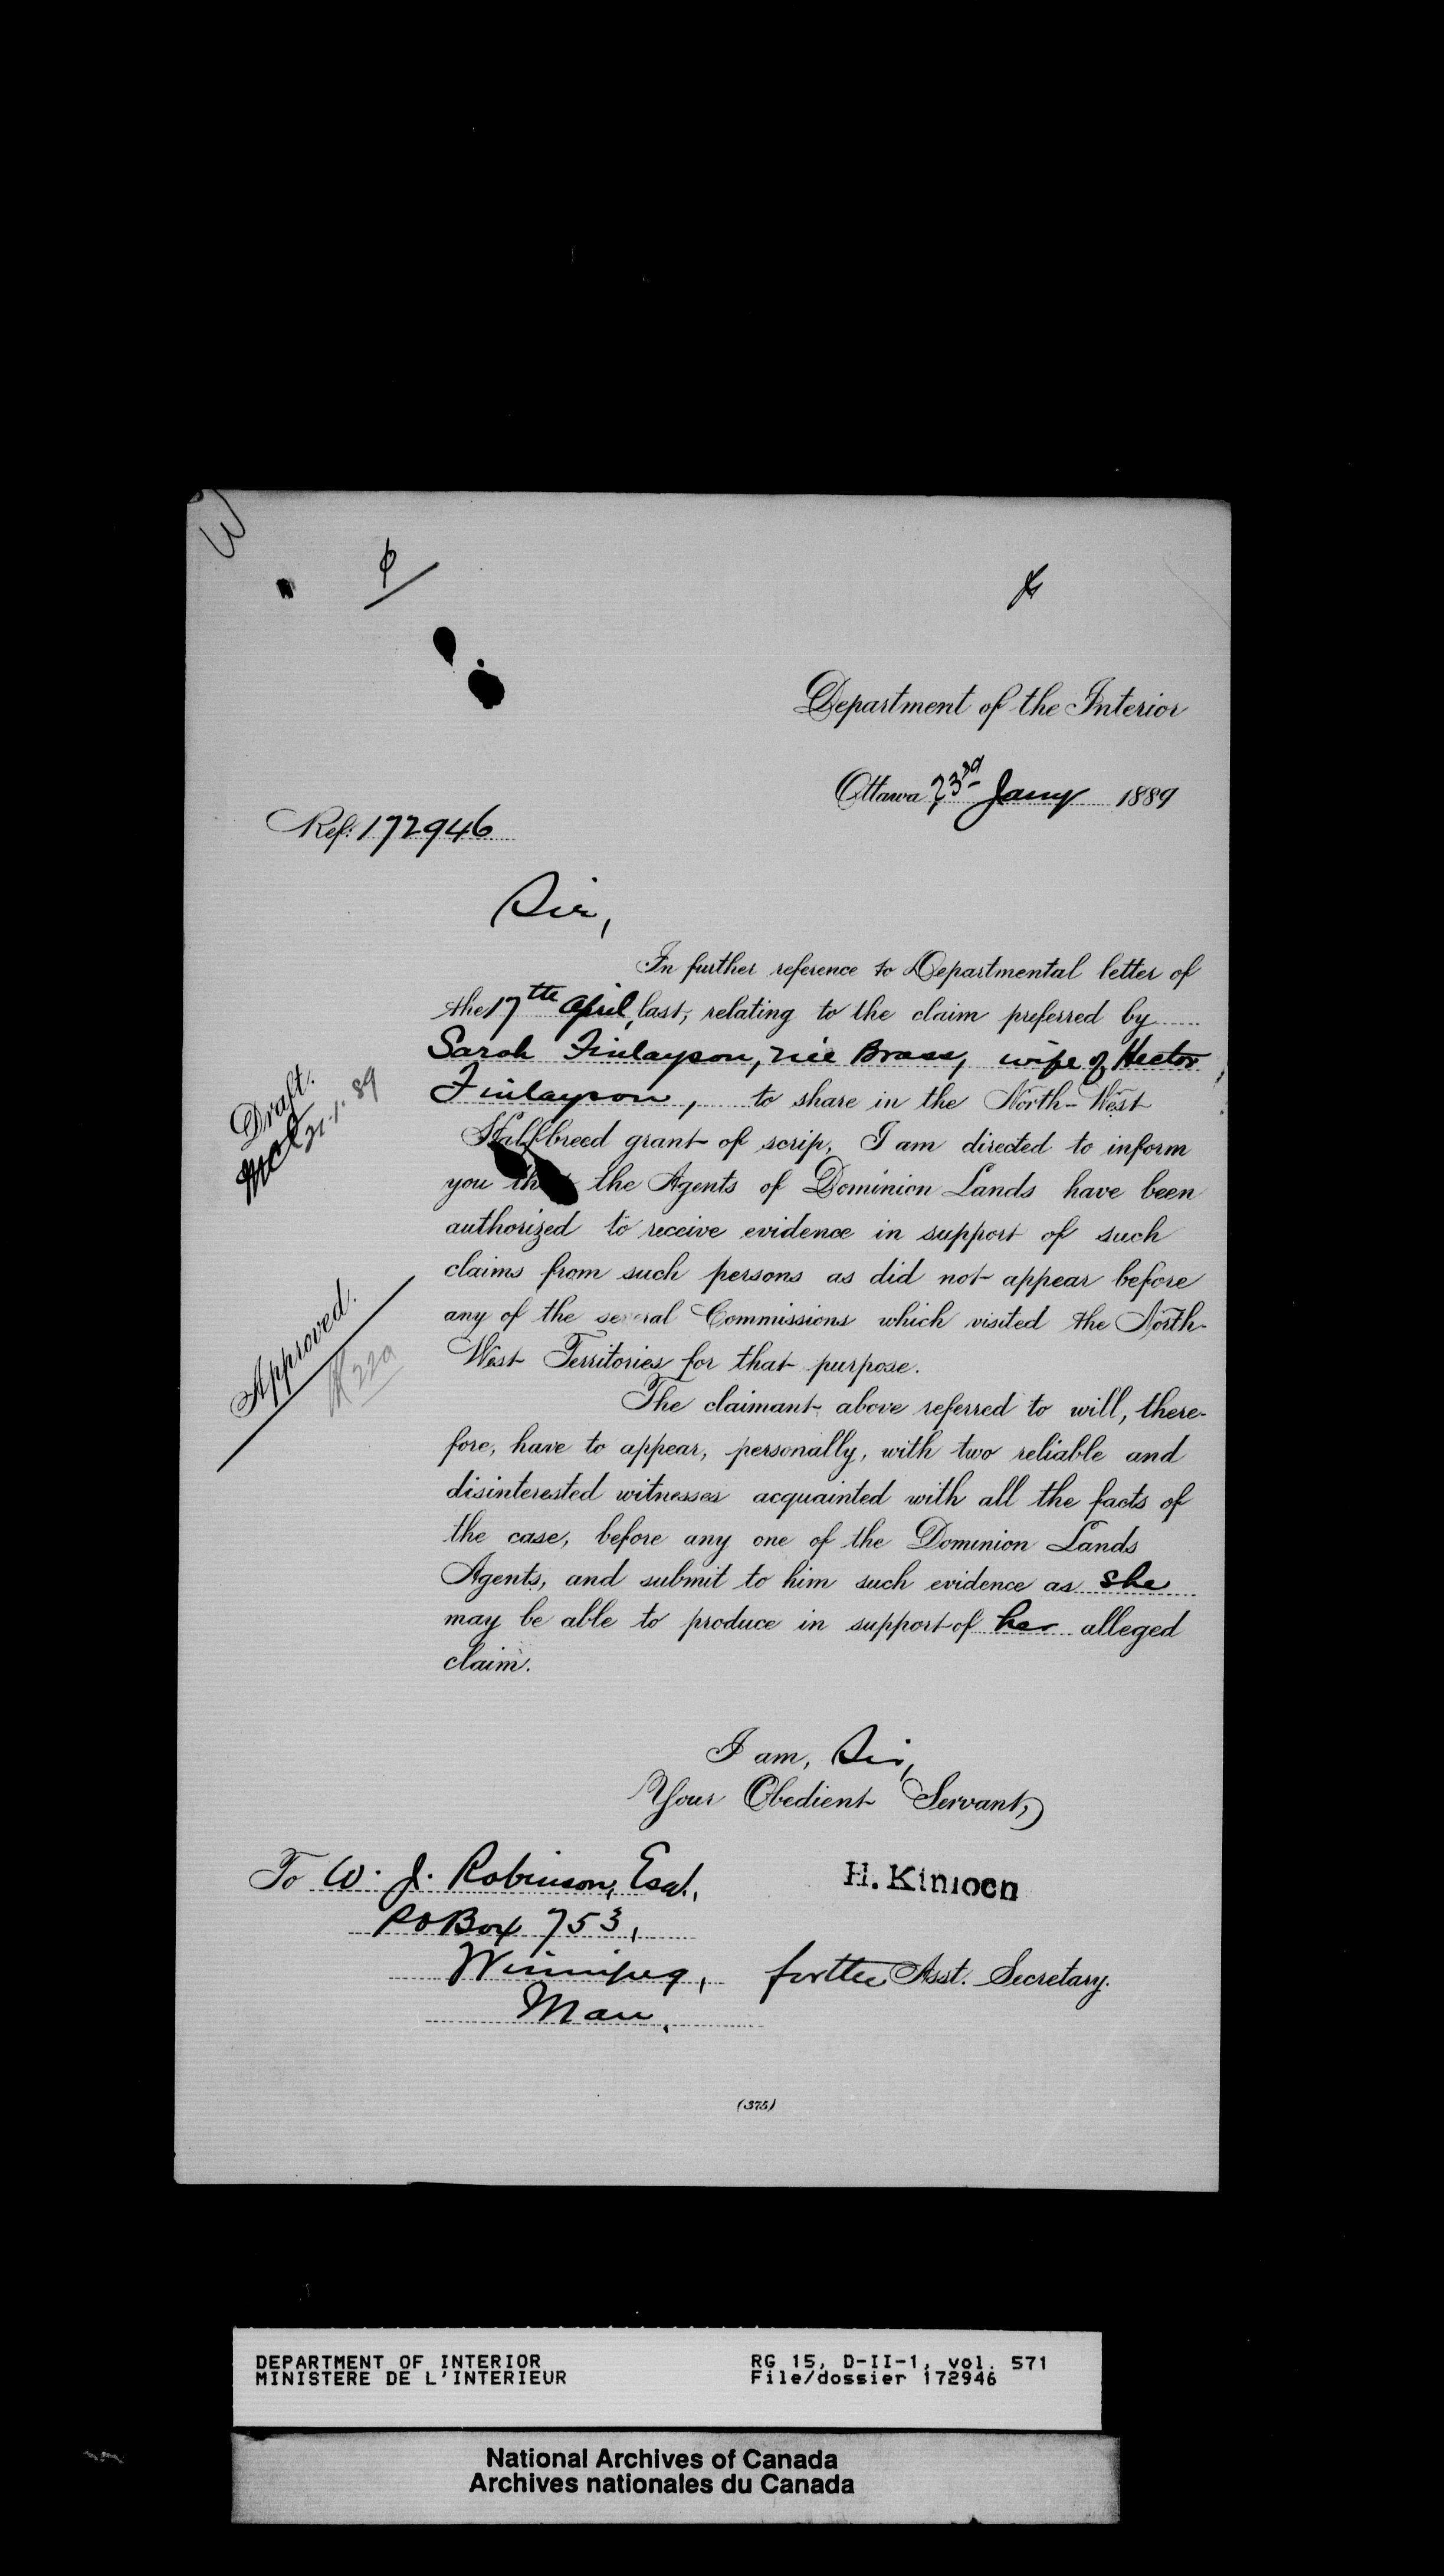 Department of the Interior
Ottawa, 23rd Jany 1889
Ref: 172946
Sir,
In further reference to Departmental letter of
the 17th April, last, relating to the claim preferred by
Sarah Finlayson, née Brass, wife of Hector
Finlayson, to share in the North-West
Halfbreed grant of scrip, I am directed to inform
you that the Agents of Dominion Lands have been
authorized to receive evidence in support of such
claims from such persons as did not appear before
any of the several Commissions which visited the North-
West Territories for that purpose.
The claimant above referred to will, there-
fore, have to appear, personally, with two reliable and
disinterested witnesses acquainted with all the facts of
the case, before any one of the Dominion Lands
Agents, and submit to him such evidence as she
may be able to produce in support of her alleged
claim.
Draft.
21.1.89
Approved.
I am, Sir,
Your Obedient Servant,
H. Kinloch
for the Asst. Secretary.
To W. J. Robinson, Esq.,
P O Box 753,
Winnipeg,
Man.
(375)
DEPARTMENT OF INTERIOR
MINISTERE DE L'INTERIEUR
RG 15, D-II-1, vol. 571
File/dossier 172946
National Archives of Canada
Archives nationales du Canada